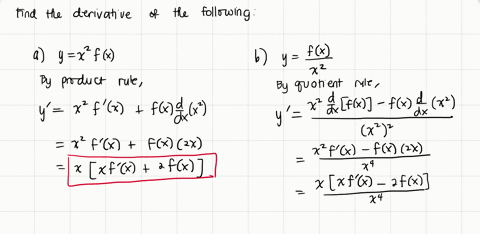 Find the derivative of the following:
a) y = x² f(x)
By product rule,
y' = x² f'(x) + f(x) d/dx (x²)
= x² f'(x) + F(x) (2x)
= x [x f'(x) + 2 f(x)]
b) y = f(x) / x²
By quotient rule,
y' = (x² d/dx [f(x)] − f(x) d/dx (x²)) / (x²)²
= (x² f'(x) − f(x) (2x)) / x⁴
= x [x f'(x) − 2f(x)] / x⁴